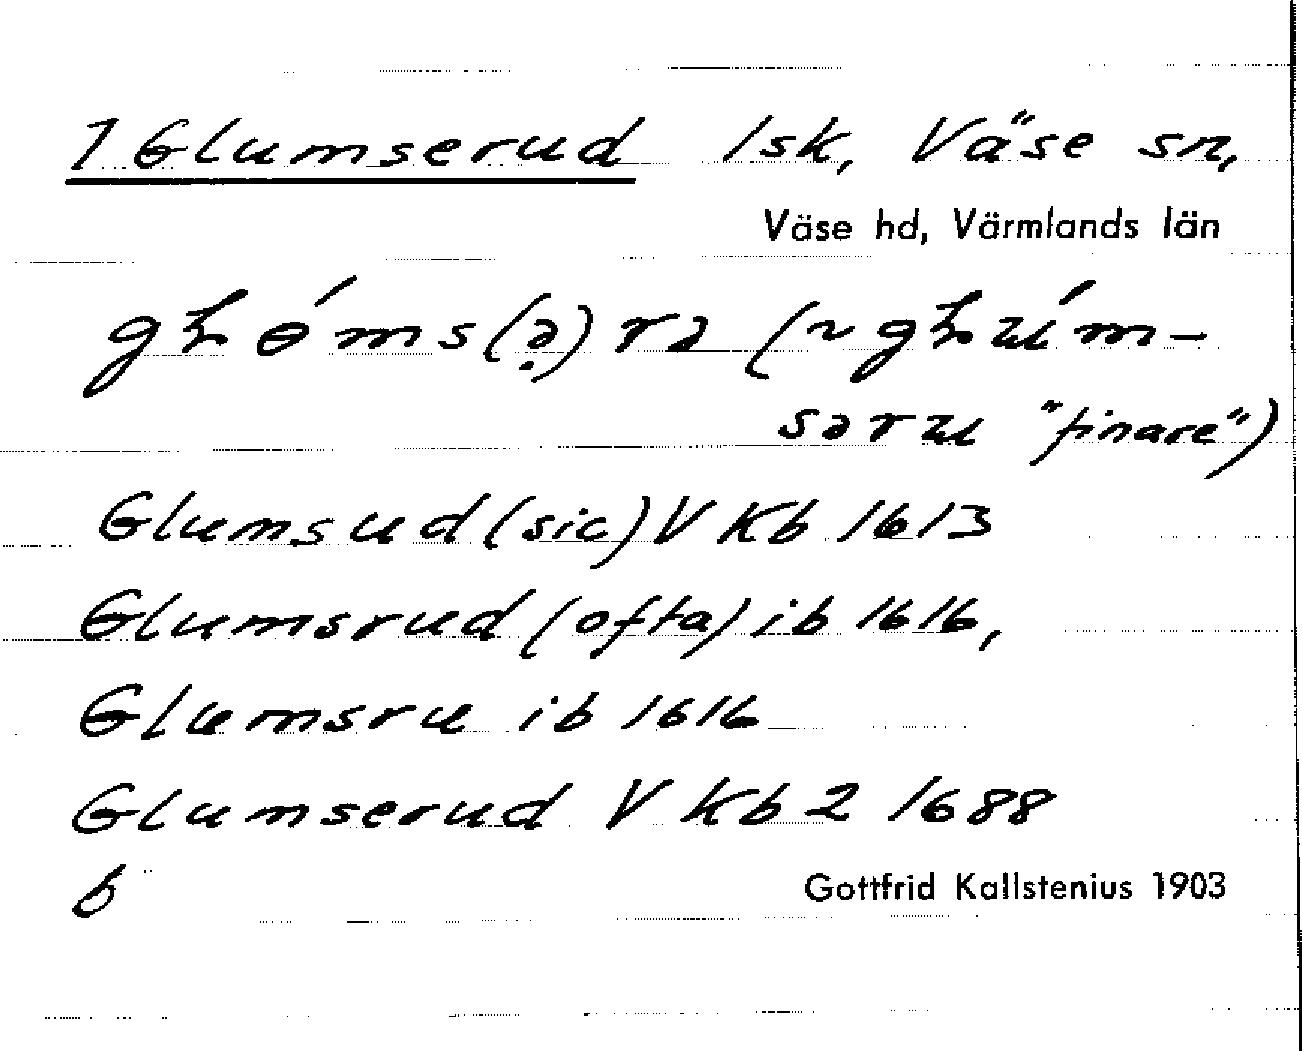 1 Glumserud 1sk, Väse sn,
Väse hd, Värmlands län
gꞎɵ́ms(ə̣)rə (~ gꞎᵾ́m-
sərᵾ "finare")
Glumsud (sic) V Kb 1613
Glumsrud (ofta) ib 1616,
Glumsru ib 1616
Glumserud V Kb 2 1688
b
Gottfrid Kallstenius 1903